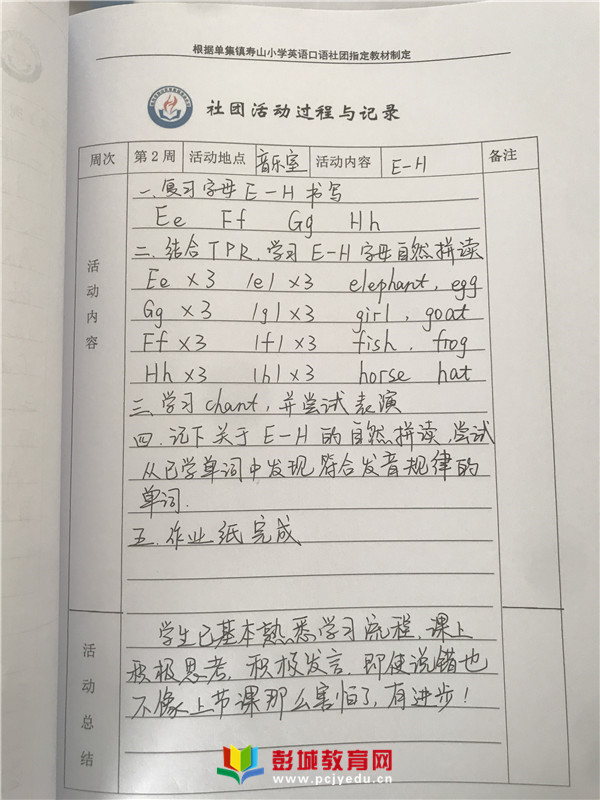 根据单集镇寿山小学英语口语社团指定教材制定
社团活动过程与记录
周次 第2周 活动地点 音乐室 活动内容 E-H 备注
活动内容
一、复习字母E-H书写
Ee Ff Gg Hh
二、结合TPR.学习E-H字母自然拼读
Ee ×3 /e/ ×3 elephant, egg
Gg ×3 /g/ ×3 girl, goat
Ff ×3 /f/ ×3 fish, frog
Hh ×3 /h/ ×3 horse hat
三、学习chant,并尝试表演
四、记下关于E-H的自然拼读,尝试
从已学单词中发现符合发音规律的
单词.
五、作业纸完成
活动总结
学生已基本熟悉学习流程,课上
积极思考,积极发言,即使说错也
不像上节课那么害怕了,有进步!
彭城教育网
www.pcjyedu.cn